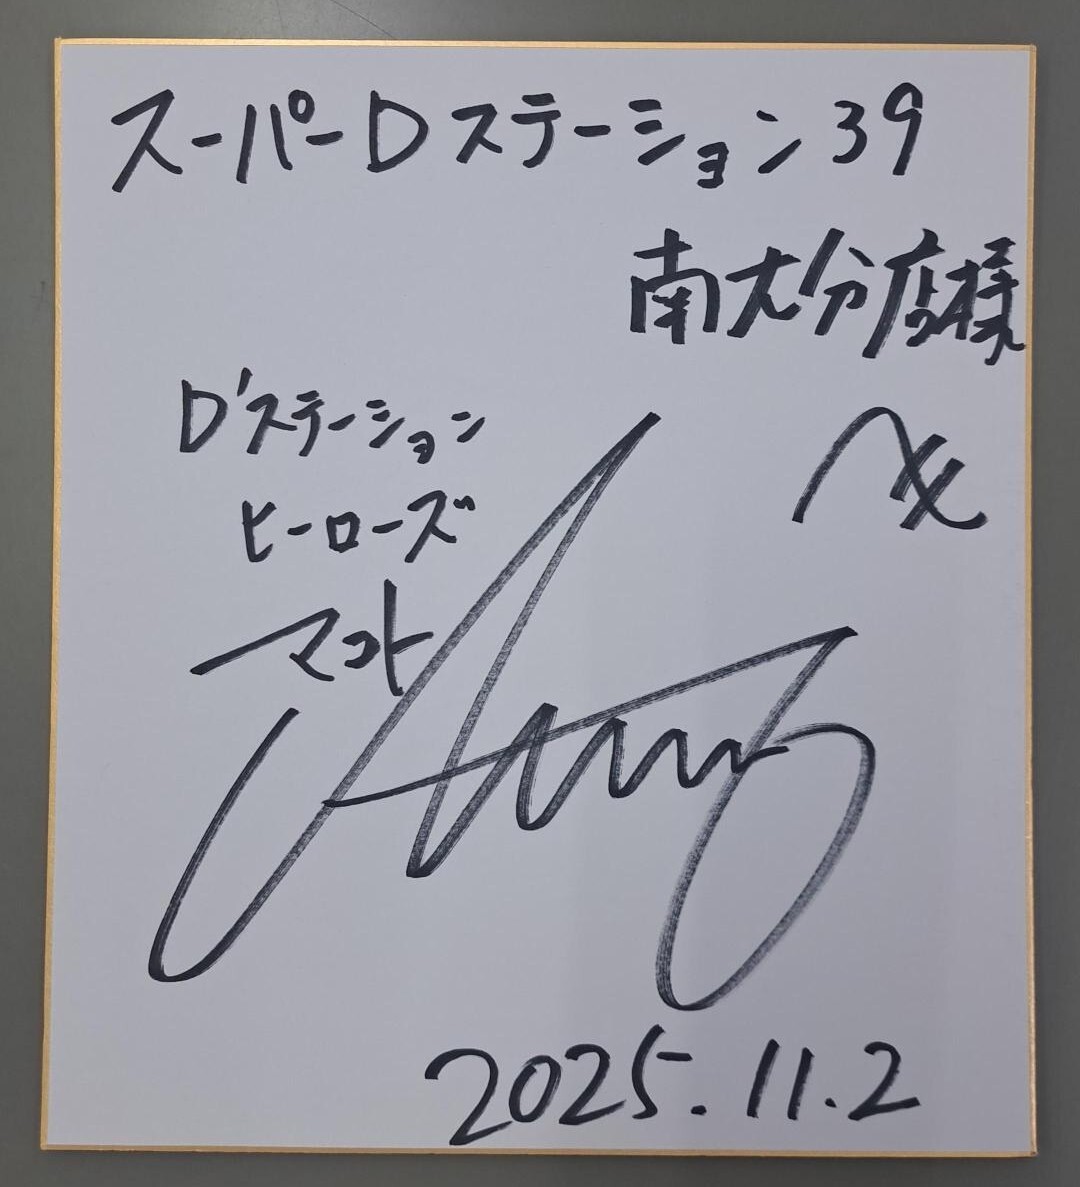 スーパーDステーション39
南大分店様
D'ステーション
ヒーローズ
マコト
2025.11.2